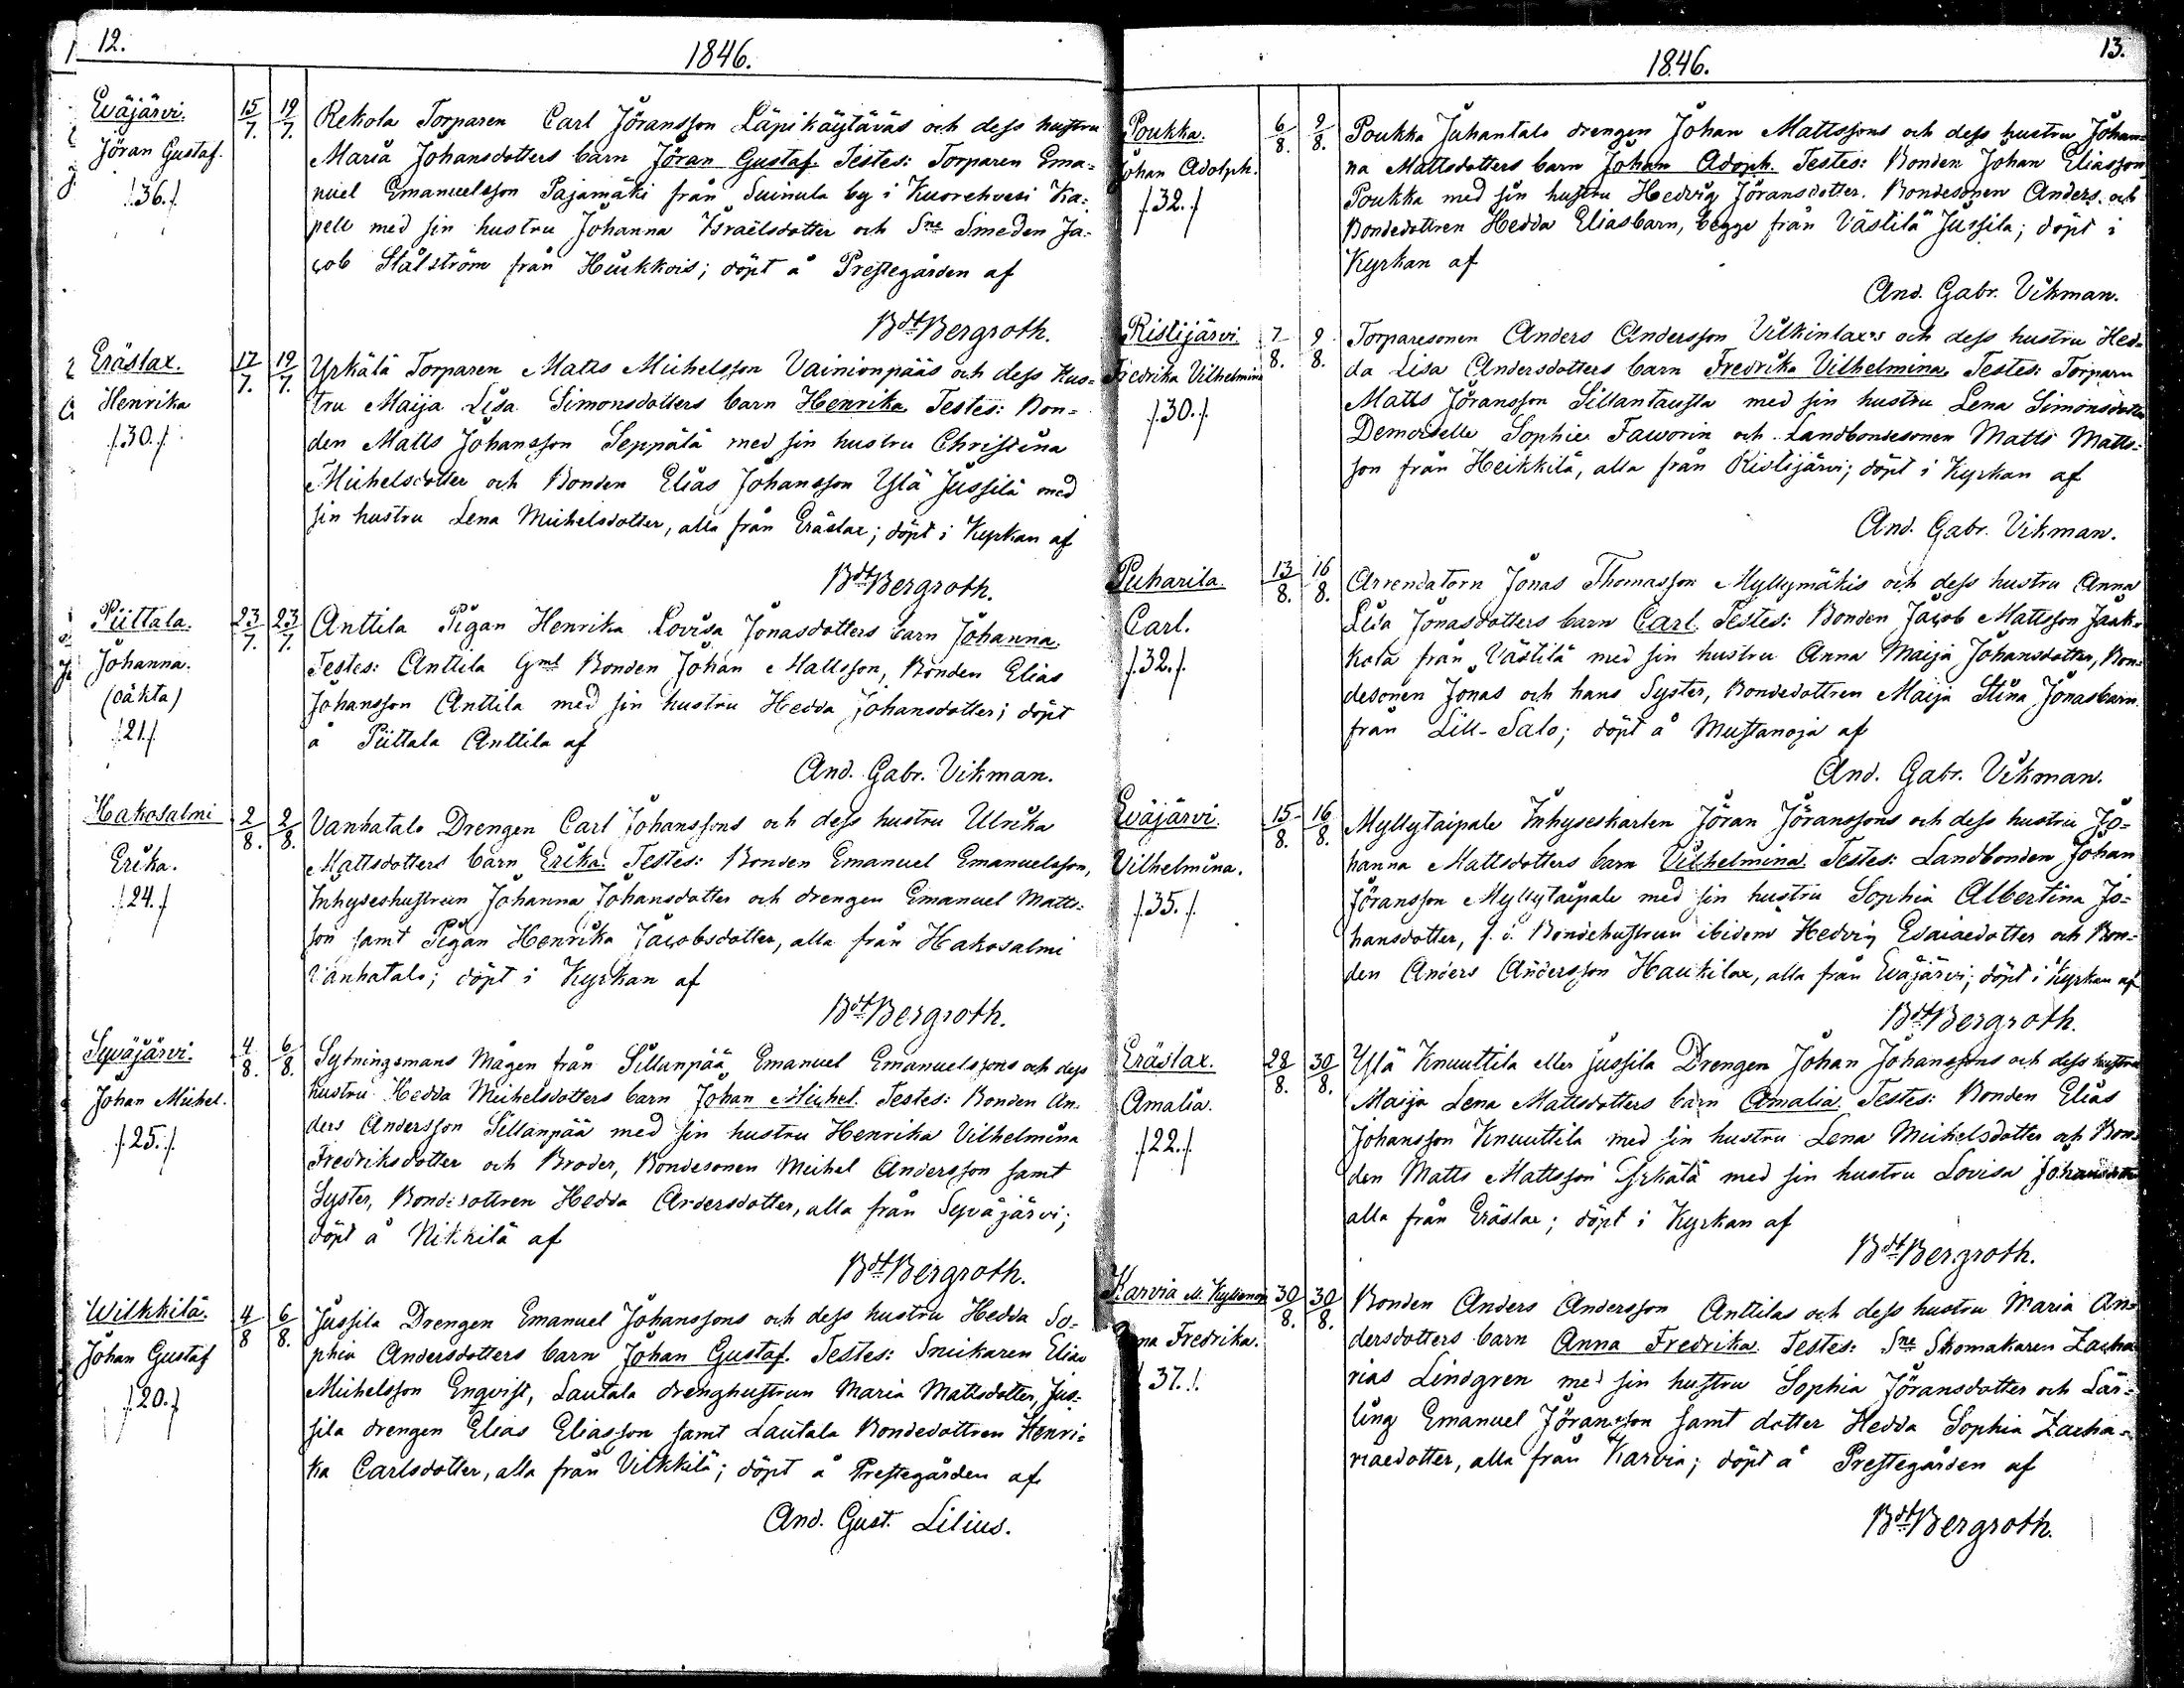 12.
1846.
Eväjärvi.
Jöran Gustaf.
/.36./
15/7. 19/7.
Rekola Torparen Carl Jöransson Läpikäytäväs och dess hustru
Maria Johansdotters barn Jöran Gustaf. Testes: Torparen Ema=
nuel Emanuelsson Pajamäki från Suinula by i Kuorehvesi Ka=
pell med sin hustru Johanna Israëlsdotter och Sne Smeden Ja=
cob Stålström från Huukkois; döpt å Prestegården af
Bdt Bergroth.
Eräslax.
Henrika
/.30./
17/7. 19/7.
Yrkälä Torparen Matts Michelsson Vainionpääs och dess hus=
tru Maija Lisa Simonsdotters barn Henrika. Testes: Bon=
den Matts Johansson Seppälä med sin hustru Christina
Michelsdotter och Bonden Elias Johansson Ylä Jussila med
sin hustru Lena Michelsdotter, alla från Eräslax; döpt i Kyrkan af
Bdt Bergroth.
Piittala.
Johanna.
(oäkta)
/.21./
23/7. 23/7.
Anttila Pigan Henrika Lovisa Jonasdotters barn Johanna.
Testes: Anttila Gml Bonden Johan Mattsson, Bonden Elias
Johansson Anttila med sin hustru Hedda Johansdotter; döpt
å Piittala Anttila af
And. Gabr. Vikman.
Hakosalmi
Erika.
/.24./
2/8. 2/8.
Vanhatalo Drengen Carl Johanssons och dess hustru Ulrika
Mattsdotters barn Erika. Testes: Bonden Emanuel Emanuelsson,
Inhyseshustrun Johanna Johansdotter och drengen Emanuel Matts=
son samt Pigan Henrika Jacobsdotter, alla från Hakosalmi
Vanhatalo; döpt i Kyrkan af
Bdt Bergroth.
Syväjärvi.
Johan Michel.
/.25./
4/8. 6/8.
Sytningsmans Mågen från Sillanpää Emanuel Emanuelssons och dess
hustru Hedda Michelsdotters barn Johan Michel. Testes: Bonden An=
ders Andersson Sillanpää med sin hustru Henrika Vilhelmina
Fredriksdotter och Broder, Bondesonen Michel Andersson samt
Syster, Bondedottren Hedda Andersdotter, alla från Syväjärvi;
döpt å Nikkilä af
Bdt Bergroth.
Wilkkilä.
Johan Gustaf
/.20./
4/8 6/8.
Jussila Drengen Emanuel Johanssons och dess hustru Hedda So=
phia Andersdotters barn Johan Gustaf. Testes: Snickaren Elias
Michelsson Enqvist, Lautala drenghustrun Maria Mattsdotter, Jus=
sila drengen Elias Eliasson samt Lautala Bondedottren Henri=
ka Carlsdotter, alla från Vilkkilä; döpt å Prestegården af
And. Gust. Lilius.
13.
1846.
Poukka.
Johan Adolph.
/.32./
6/8. 9/8.
Poukka Juhantalo drengen Johan Mattssons och dess hustru Johan=
na Mattsdotters barn Johan Adoph. Testes: Bonden Johan Eliasson
Poukka med sin hustru Hedvig Jöransdotter. Bondesonen Anders och
Bondedottren Hedda Eliasbarn, begge från Västilä Jussila; döpt i
Kyrkan af
And. Gabr. Vikman.
Ristijärvi
Fredrika Vilhelmina
/.30./
7/8. 9/8.
Torparesonen Anders Andersson Vilkinlaxes och dess hustru Hed=
da Lisa Andersdotters barn Fredrika Vilhelmina. Testes: Torparen
Matts Jöransson Sillantausta med sin hustru Lena Simonsdotter
Demoiselle Sophie Faworin och Landbondesonen Matts Matts=
son från Heikkilä, alla från Ristijärvi; döpt i Kyrkan af
And. Gabr. Vikman.
Puharila.
Carl.
/.32./
13/8. 16/8.
Arrendatorn Jonas Thomasson Myllymäkis och dess hustru Anna
Lisa Jonasdotters barn Carl. Testes: Bonden Jacob Mattsson Jaak=
kola från Västilä med sin hustru Anna Maija Johansdotter, Bon=
desonen Jonas och hans Syster, Bondedottren Maija Stina Jonasbarn
från Lill-Salo; döpt å Mustanoja af
And. Gabr. Vikman.
Eväjärvi.
Vilhelmina.
/.35./
15/8. 16/8.
Myllytaipale Inhyseskarlen Jöran Jöranssons och dess hustru Jo=
hanna Mattsdotters barn Vilhelmina. Testes: Landbonden Johan
Jöransson Myllytaipale med sin hustru Sophia Albertina Jo=
hansdotter, f. d. Bondehustrun ibidem Hedvig Esaiaedotter och Bon=
den Anders Andersson Haukilax, alla från Eväjärvi; döpt i Kyrkan af
Bdt Bergroth.
Eräslax.
Amalia.
/.22./
28/8. 30/8.
Ylä Knuuttila eller Jussila Drengen Johan Johanssons och dess hustru
Maija Lena Mattsdotters barn Amalia. Testes: Bonden Elias
Johansson Knuuttila med sin hustru Lena Michelsdotter och Bon=
den Matts Mattsson Yrkälä med sin hustru Lovisa Johansdotter
alla från Eräslax; döpt i Kyrkan af
Bdt Bergroth.
Karvia
na Fredrika.
37./.
30/8. 30/8.
Bonden Anders Andersson Anttilas och dess hustru Maria An=
dersdotters barn Anna Fredrika. Testes: Sne Skomakaren Zacha
rias Lindgren med sin hustru Sophia Jöransdotter och Lär=
ling Emanuel Jöransson samt dotter Hedda Sophia Zacha=
riaedotter, alla från Karvia; döpt å Prestegården af
Bdt Bergroth.